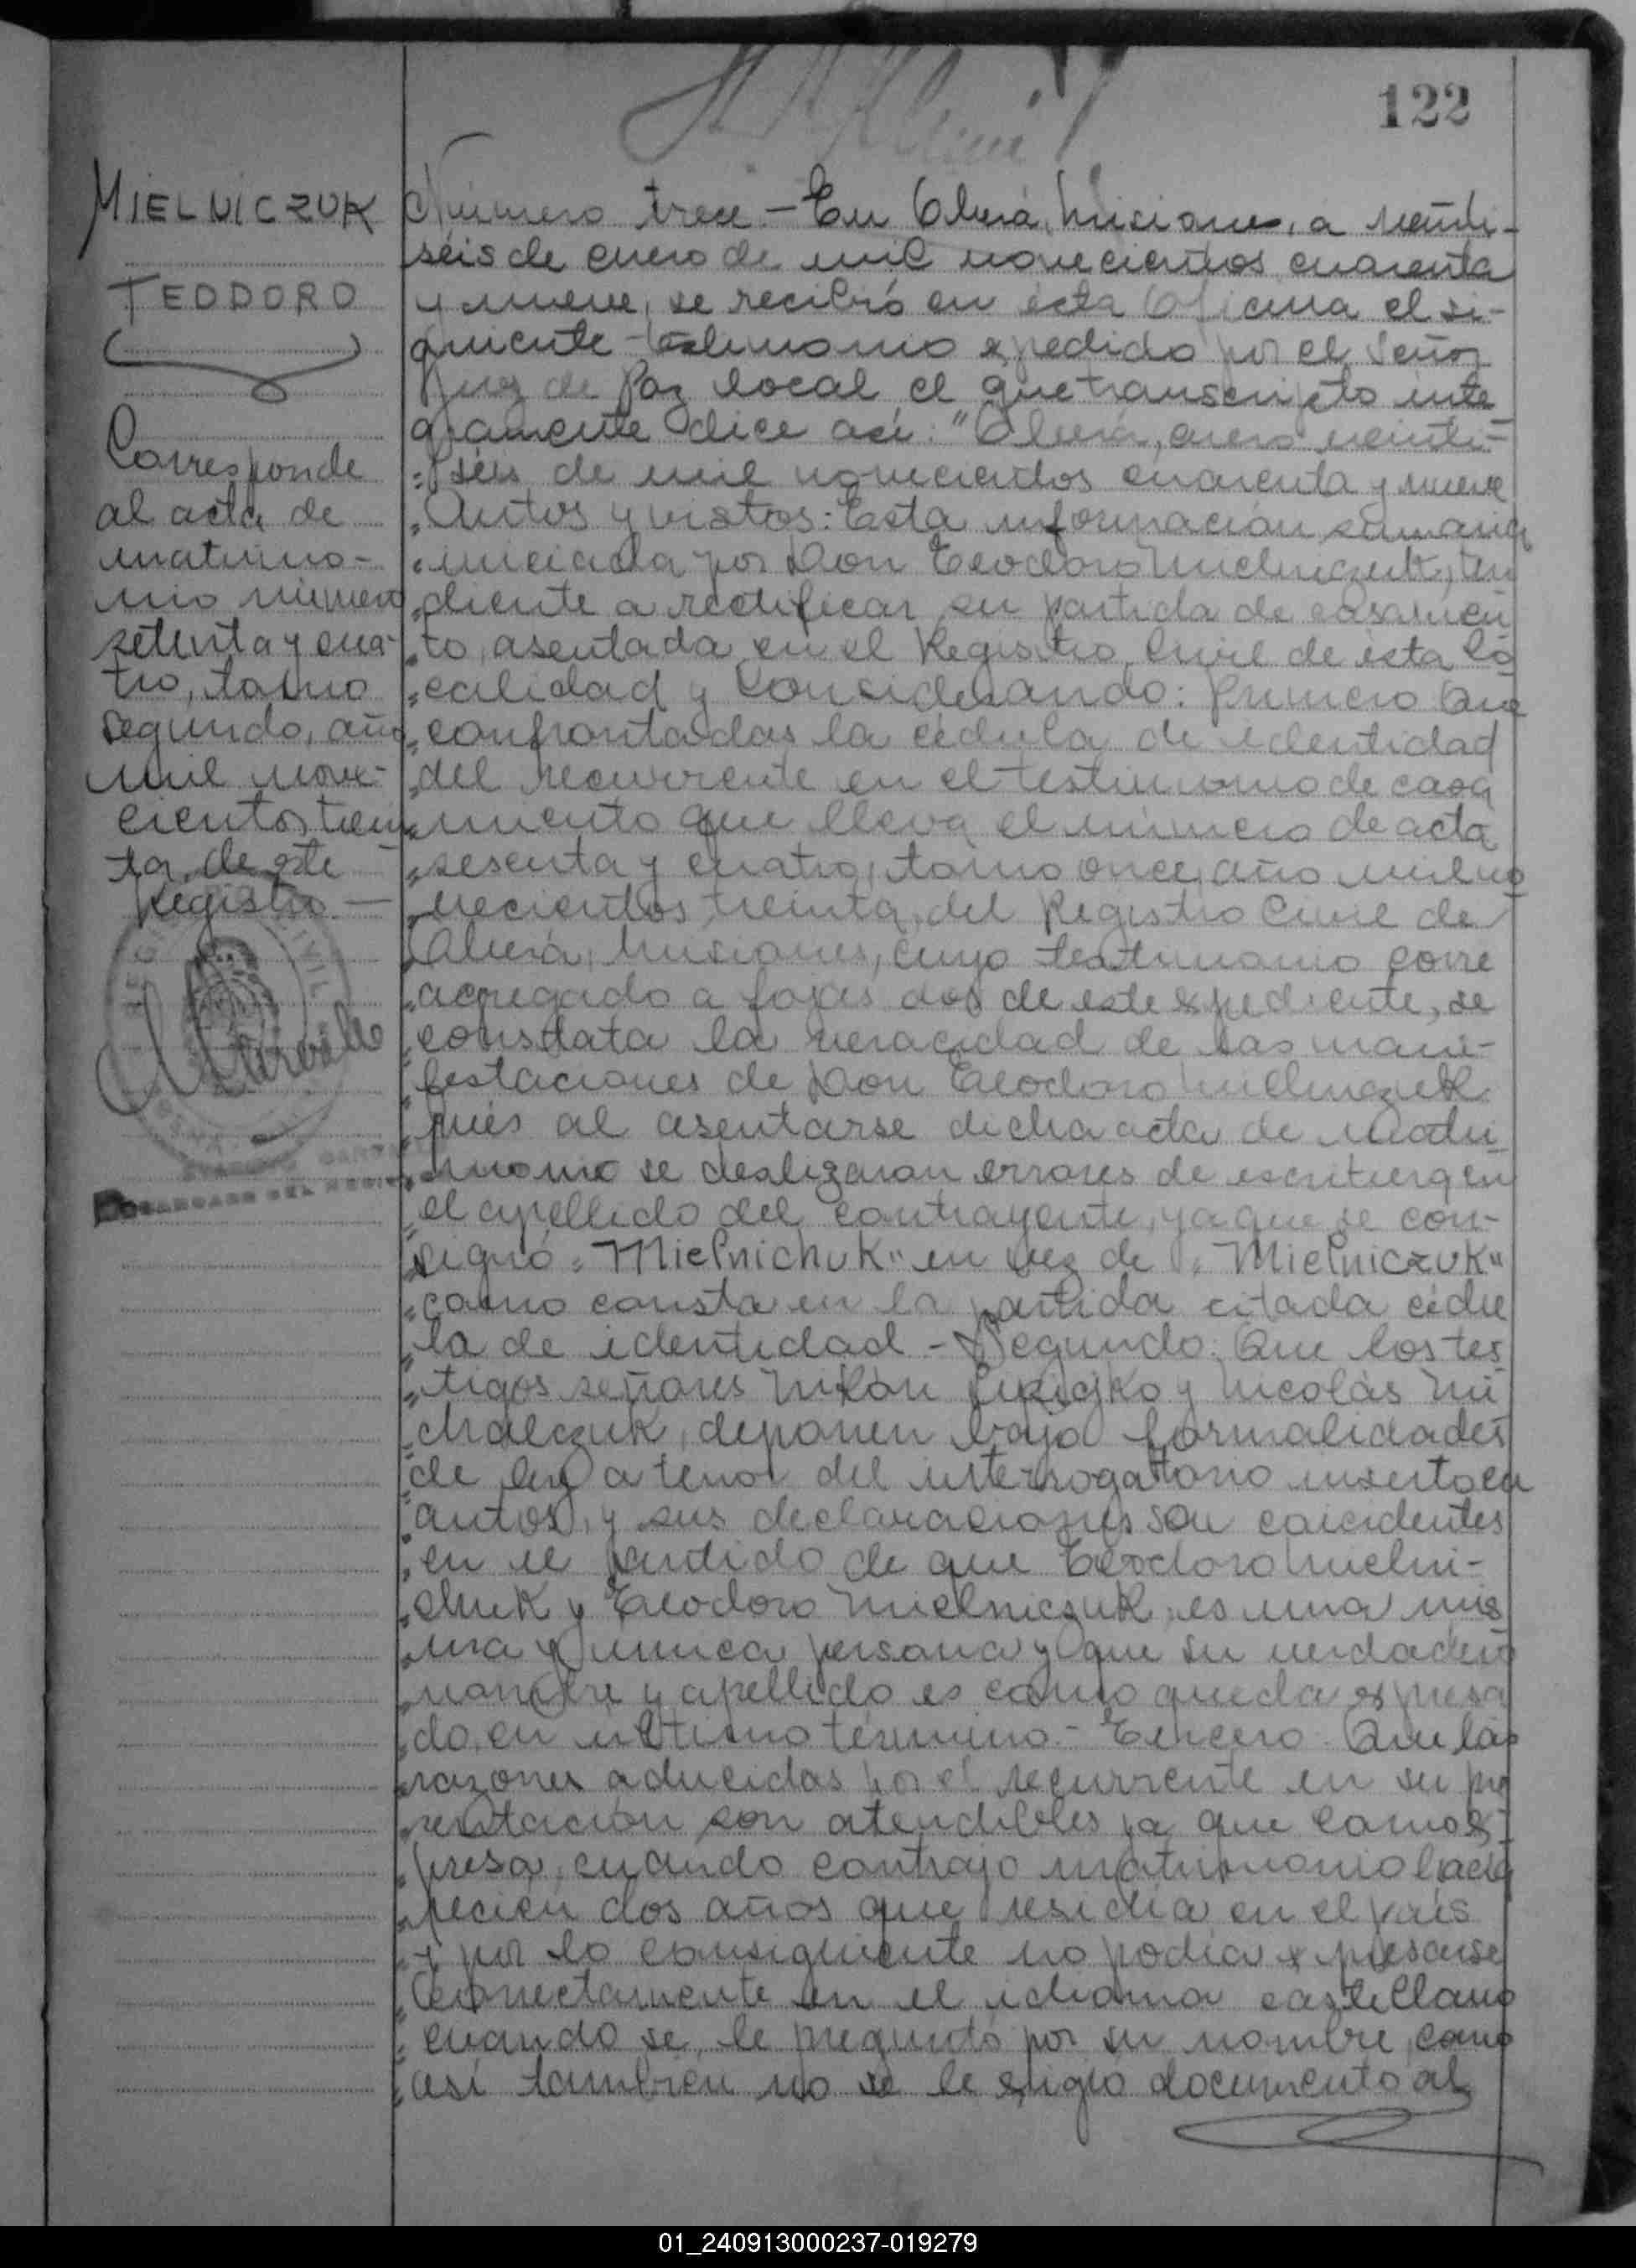 122
MIELNICZUK
TEODORO
Corresponde
al acta de
matrimo-
nio número
setenta y cua-
tro, tomo
segundo, año
mil nove-
cientos trein-
ta, de este
Registro.—
Número trece.— En Oberá, Misiones, a veinti-
séis de enero de mil novecientos cuarenta
y nueve, se recibió en ésta Oficina el si-
guiente testimonio expedido por el Señor
Juez de Paz local el que transcripto inte-
gramente dice así: "Oberá, enero veinti-
"séis de mil novecientos cuarenta y nueve
"Autos y vistos: Esta información sumaria
"iniciada por Don Teodoro Mielniczuk, ten
"diente a rectificar su partida de casamien
"to, asentada en el Registro Civil de ésta lo
"calidad y Considerando: Primero Que
"confrontadas la cédula de identidad
"del recurrente en el testimonio de casa
"miento que lleva el número de acta
"sesenta y cuatro, tomo once, año mil no
"vecientos treinta, del Registro Civil de
"Oberá, Misiones, cuyo testimonio corre
"agregado a fojas dos de este expediente, se
"constata la veracidad de las mani-
"festaciones de Don Teodoro Mielniczuk
"pués al asentarse dicha acta de matri
"monio se deslizaron errores de escritura en
"el apellido del contrayente, ya que se con-
"signó "Mielnichuk" en vez de "Mielniczuk"
"como consta en la partida citada cédu
"la de identidad - Segundo: Que los tes
"tigos señores Milón y Nicolás Mi
"chalczuk, deponen bajo formalidades
"de ley a tenor del interrogatorio inserto en
"autos, y sus declaraciones son coicidentes
"en el sentido de que Teodoro Mielni-
"chuk y Teodoro Mielniczuk, es una mis
"ma y única persona y que su verdadero
"nombre y apellido es como queda espresa
"do, en último término.- Tercero: Que las
"razones aducidas por el recurrente en su pre
"sentación son atendibles ya que como es-
"presa, cuando contrajo matrimonio hacia
"recién dos años que residía en el país
"y por lo consiguiente no podía expresarse
"correctamente en el idioma castellano
"cuando se le preguntó por su nombre, como
"así también no se le exigió documento al
01_240913000237-019279